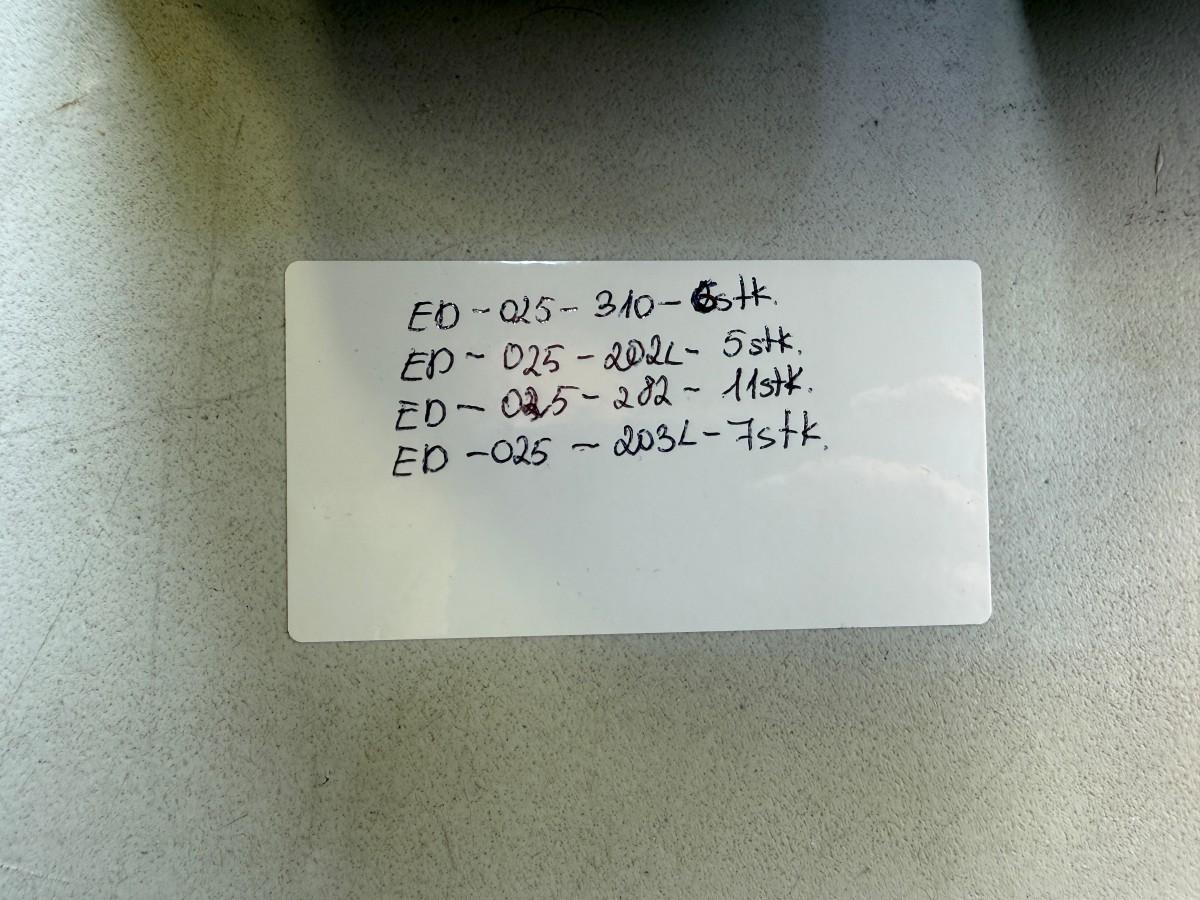 ED - 025 - 310 - 6stk.
ED - 025 - 202L - 5stk.
ED - 025 - 282 - 11stk.
ED - 025 - 203L - 7stk.